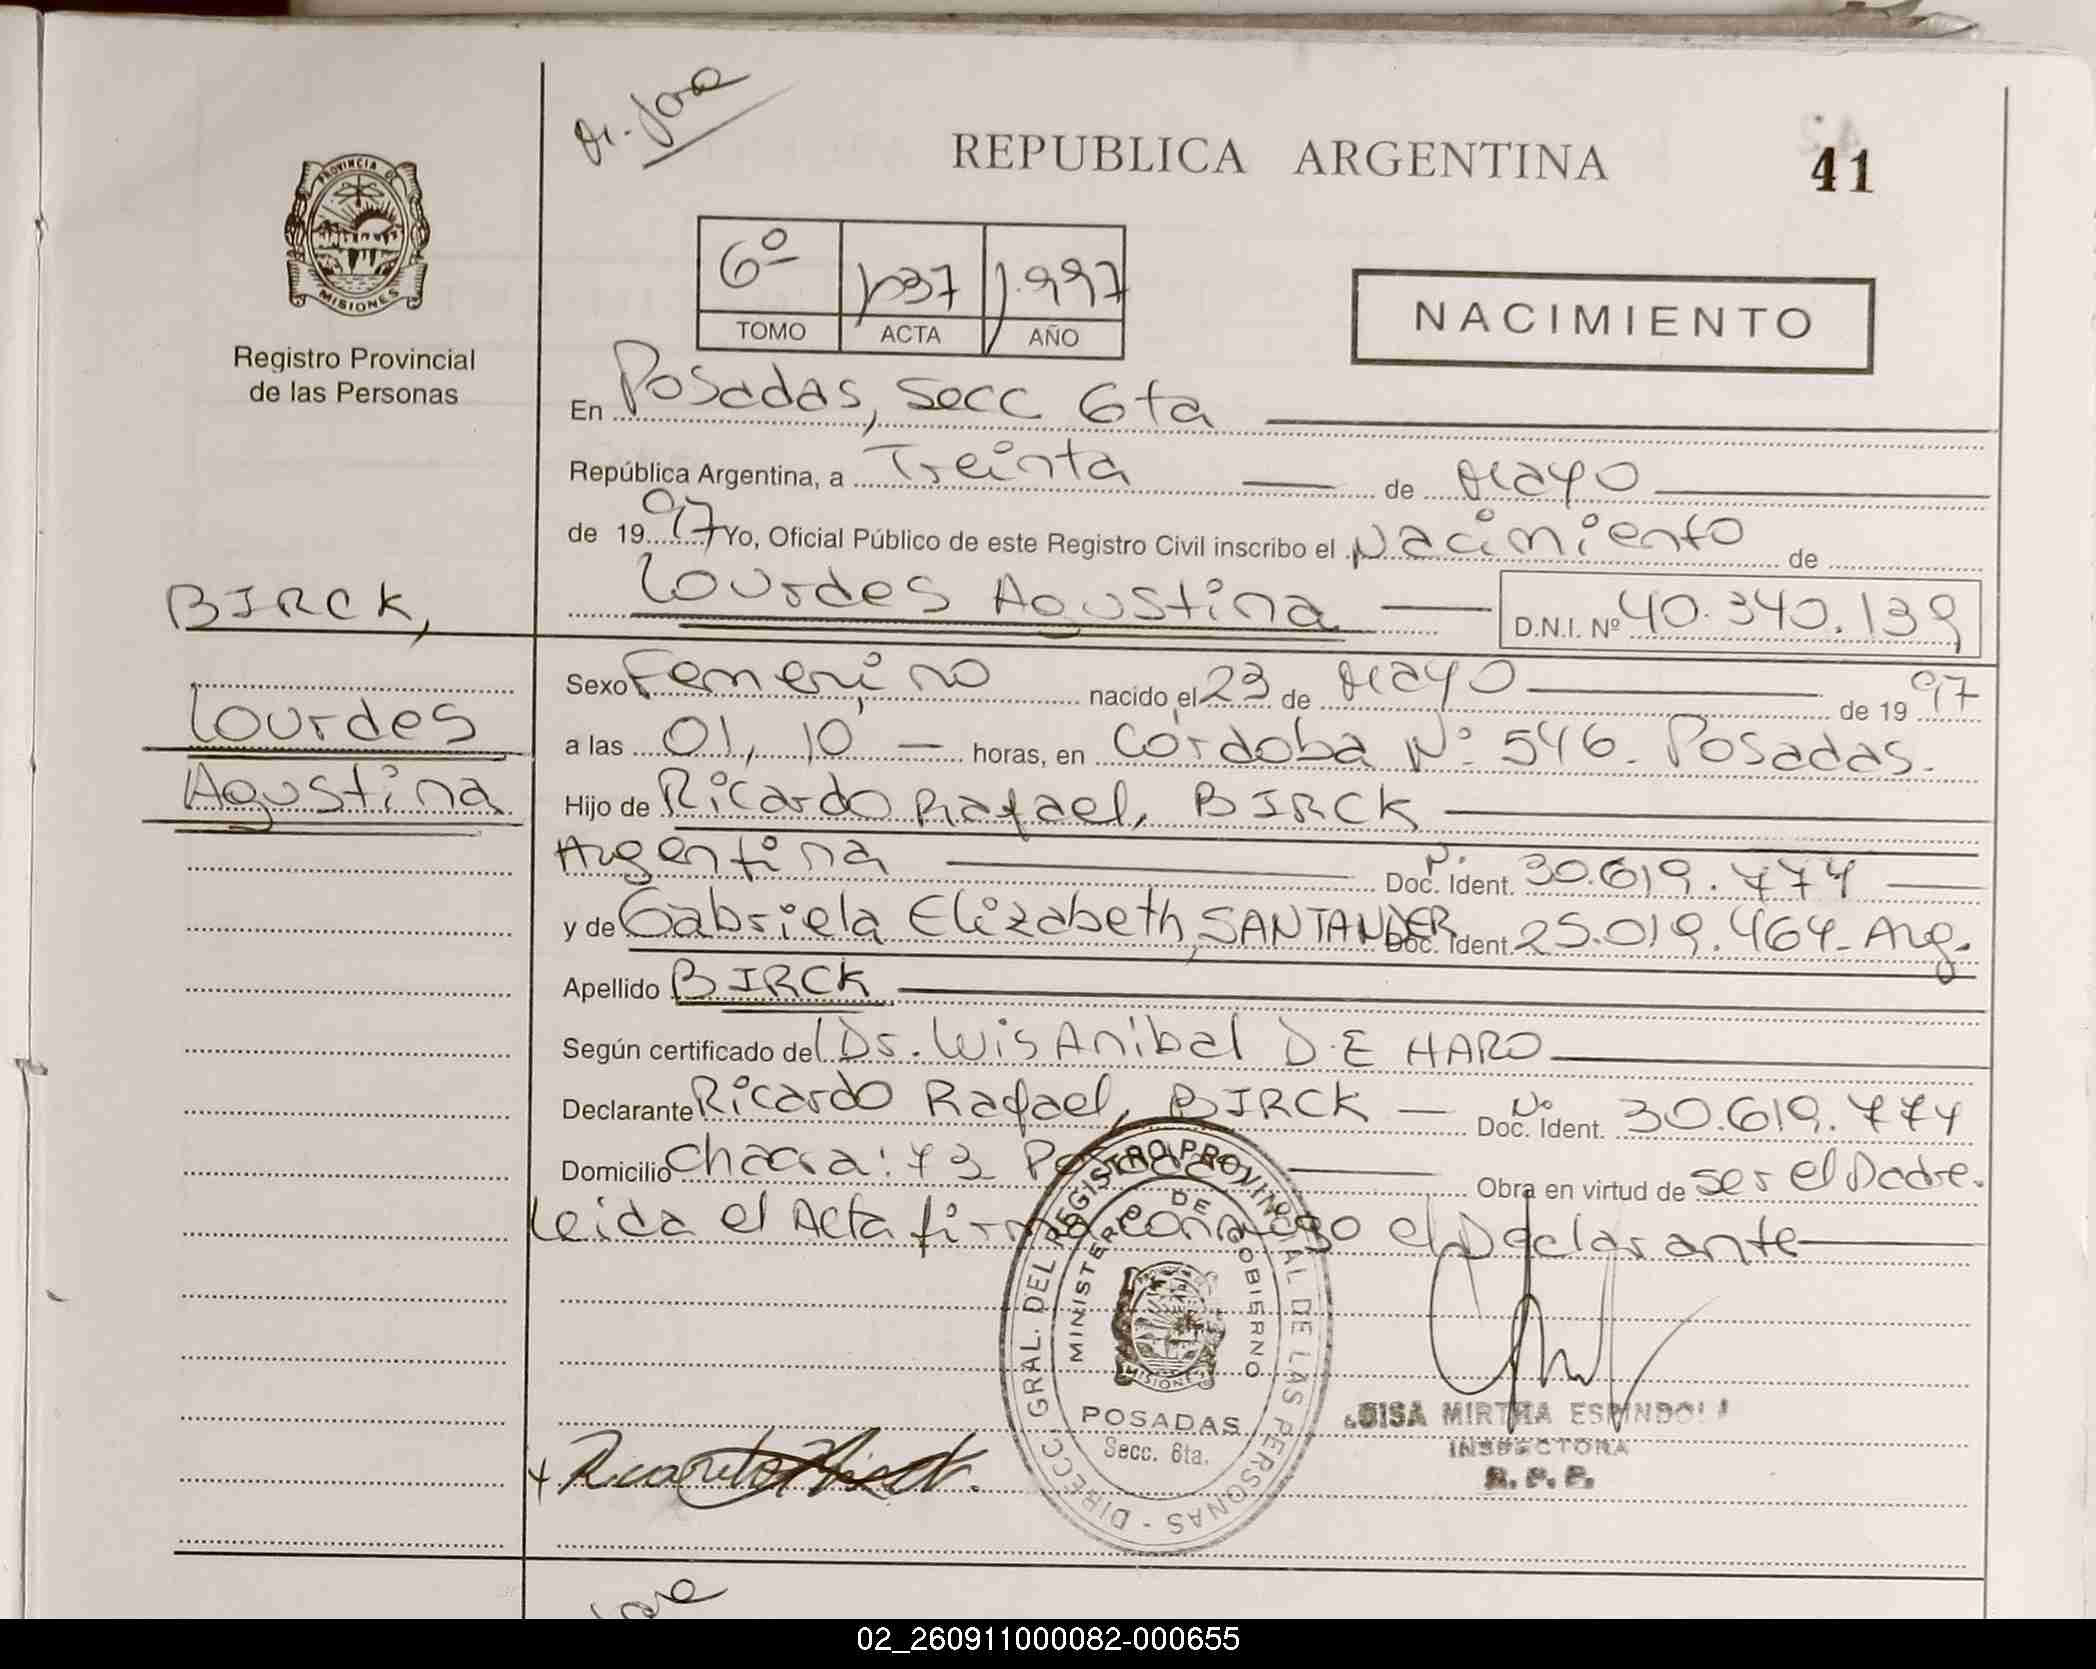 REPUBLICA ARGENTINA
41
PROVINCIA DE
MISIONES
Registro Provincial
de las Personas
6º 1.997
TOMO ACTA AÑO
NACIMIENTO
En Posadas, Secc 6ta
República Argentina, a Treinta de Mayo
de 1997 Yo, Oficial Público de este Registro Civil inscribo el Nacimiento de
Lourdes Agustina D.N.I. Nº 40.340.139
BIRCK,
Lourdes
Agustina
Sexo Femenino nacido el 23 de Mayo de 1997
a las 01,10 horas, en Córdoba Nº 546. Posadas.
Hijo de Ricardo Rafael, BIRCK
Argentina Nº Doc. Ident. 30.619.774
y de Gabriela Elizabeth, SANTANDER Doc. Ident. 25.019.464- Arg.
Apellido BIRCK
Según certificado del Dr. Luis Anibal DE HARO
Declarante Ricardo Rafael, BIRCK Nº Doc. Ident. 30.619.774
Domicilio Chacra: 73 Posadas Obra en virtud de ser el Padre.
Leida el Acta firma conmigo el Declarante
DIRECC. GRAL. DEL REGISTRO PROVINCIAL DE LAS PERSONAS
MINISTERIO DE GOBIERNO
MISIONES
POSADAS
Secc. 6ta.
LUISA MIRTHA ESPINDOLA
INSPECTORA
R. P. P.
02_260911000082-000655